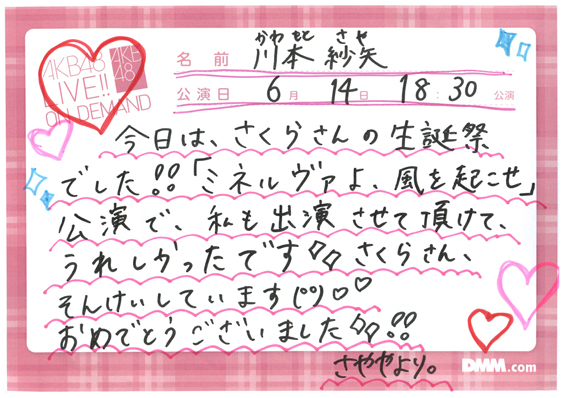 AKB48
LIVE!!
ON DEMAND
AKB
48
かわもと さや
名前 川本 紗矢
公演日 6月 14日 18:30 公演
今日は、さくらさんの生誕祭
でした!!「ミネルヴァよ、風を起こせ」
公演で、私も出演させて頂けて、
うれしかったです さくらさん、
そんけいしています(^^)♡♡
おめでとうございました!!
さややより。
DMM.com